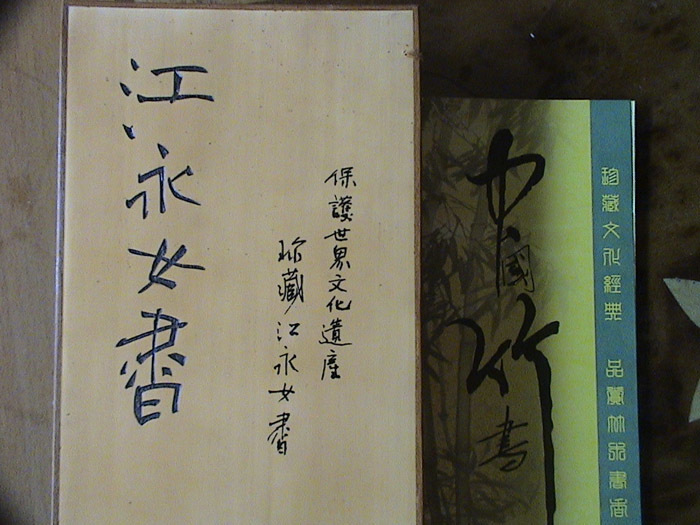 江永女書
保護世界文化遺産
珎藏江永女書
中國竹書
珍藏文化經典 品賞竹木書香